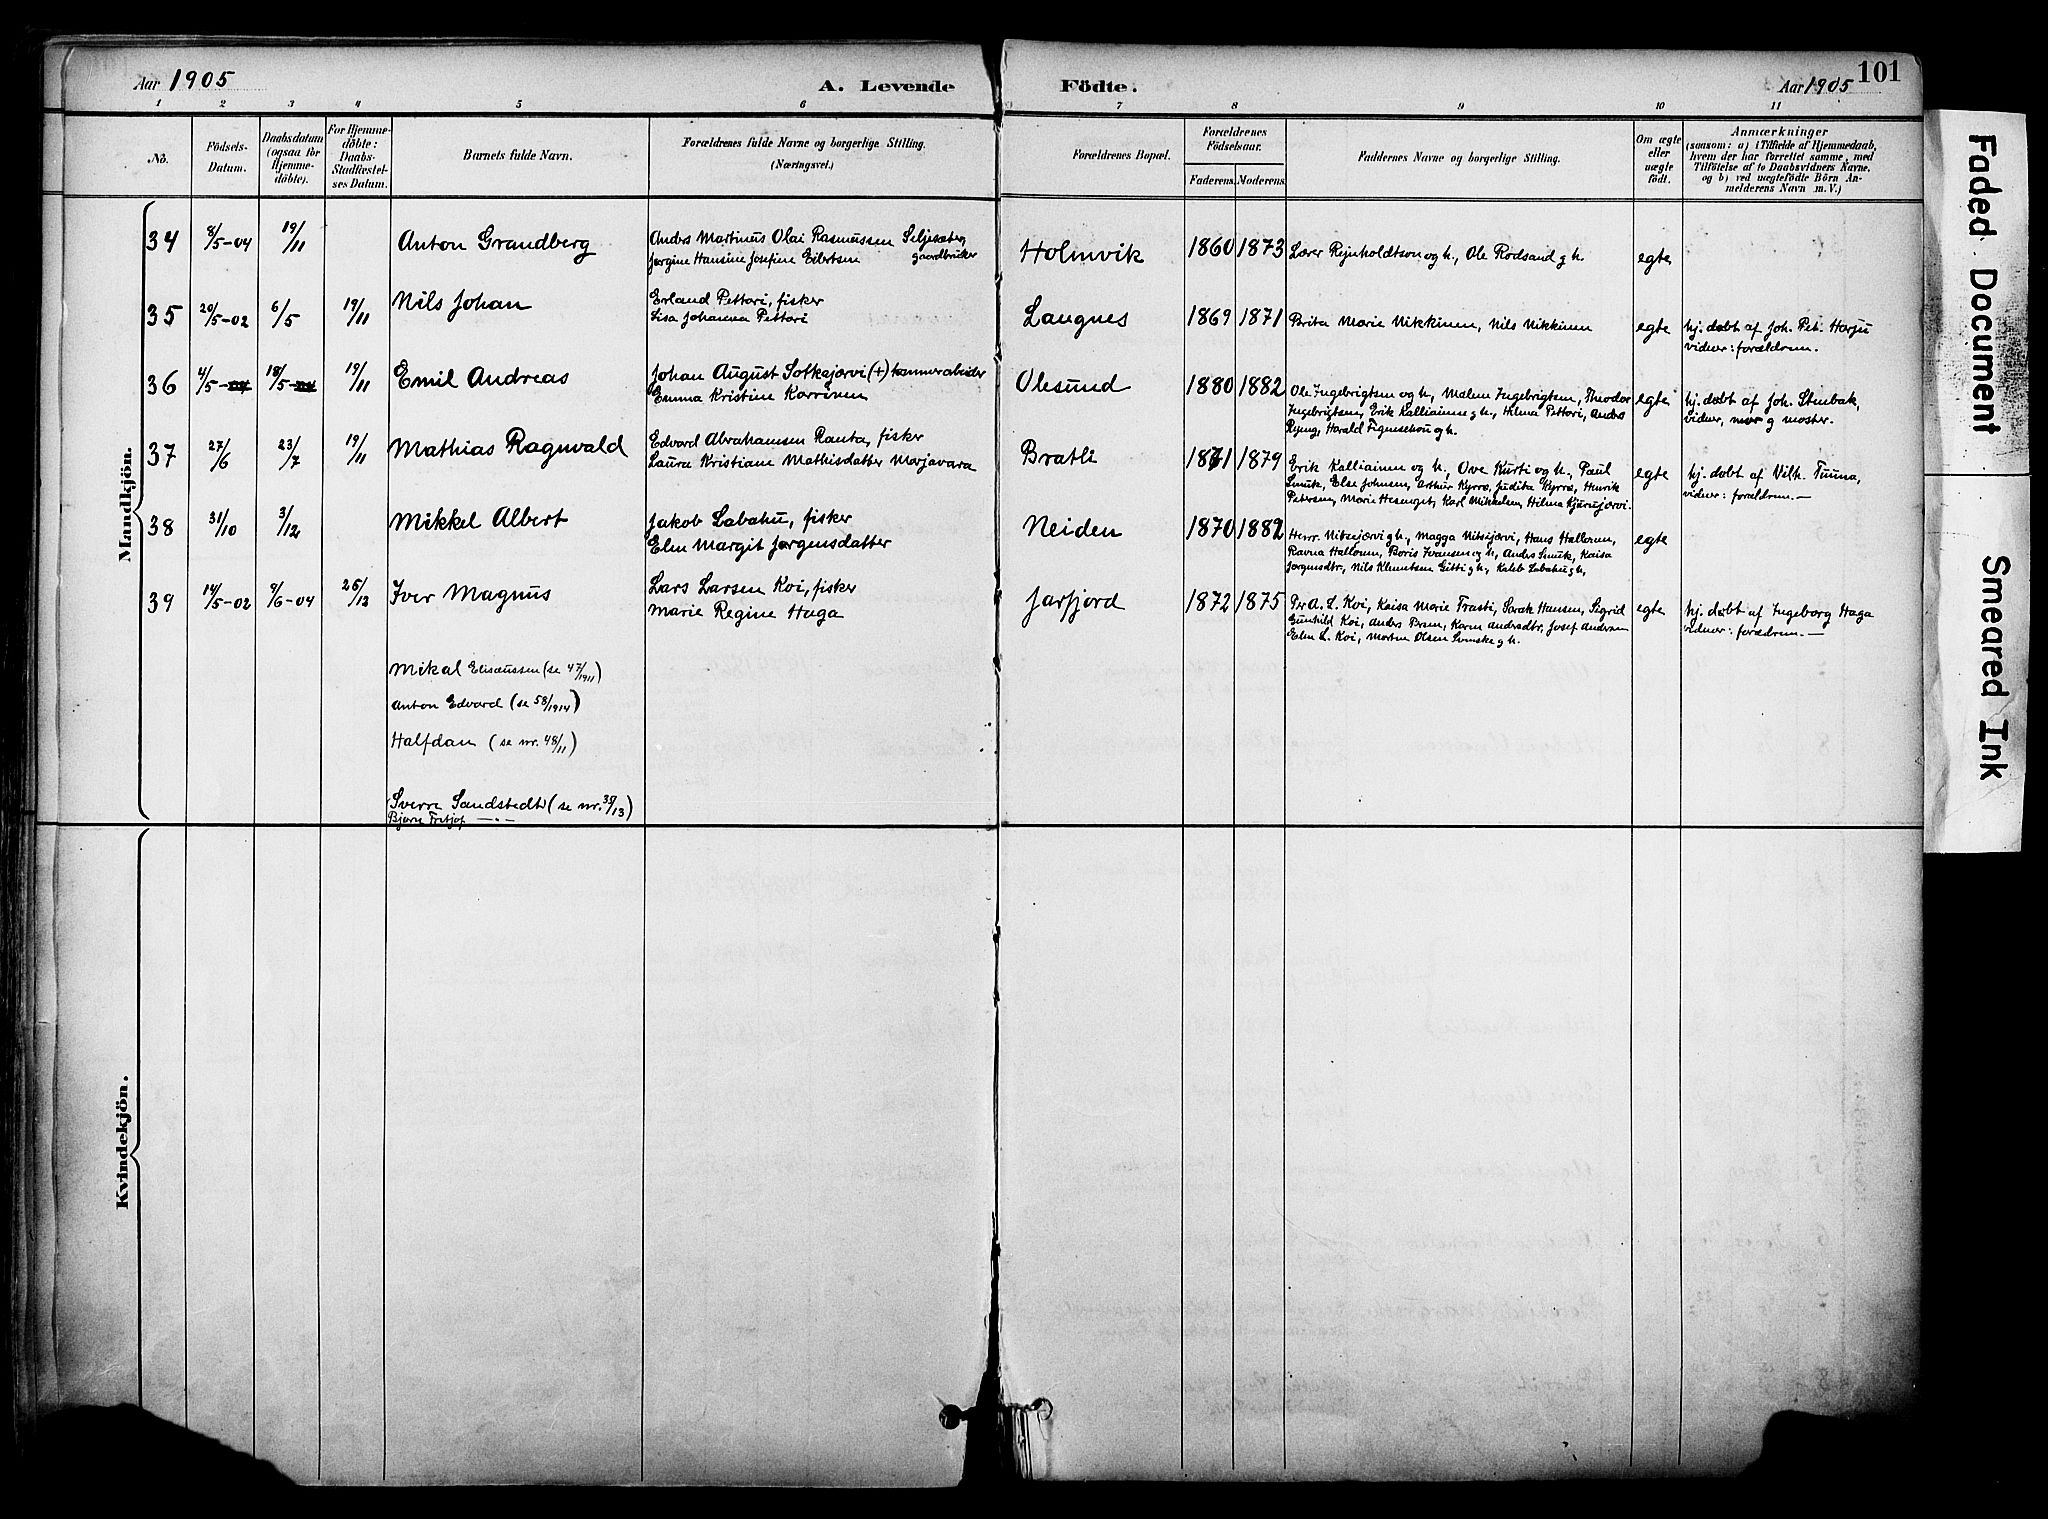 Aar 1905
A. Levende Födte.
Aar 1905
101
1 2 3 4 5 6 7 8 9 10 11
No.
Födsels-Datum.
Daabsdatum (ogsaa for Hjemme-döbte).
For Hjemme-döbte: Daabs-Stadfæstel-ses Datum.
Barnets fulde Navn.
Forældrenes fulde Navne og borgerlige Stilling.
(Næringsvei.)
Forældrenes Bopæl.
Forældrenes Födselsaar.
Faderens. Moderens.
Faddernes Navne og borgerlige Stilling.
Om ægte eller uægte födt.
Anmærkninger
(saasom: a) i Tilfælde af Hjemmedaab,
hvem der har forrettet samme, med
Tilföielse af to Daabsvidners Navne,
og b) ved uægtefödte Börn An-
melderens Navn m. V.)
Mandkjön.
34 8/5-04 19/11 Anton Grandberg
Anders Martinus Olai Rasmussen Seljesæter
Jørgine Hansine Josefine Eibertsen gaardbruker
Holmvik 1860 1873
Lærer Rejnholdtson og h., Ole Rodsand g h.
egte
35 20/5-02 6/5 19/11 Nils Johan
Erland Pettari, fisker
Lisa Johanna Pettari
Langnes 1869 1871
Brita Marie Nikkinen, Nils Nikkinen
egte
hj. døbt af Joh. Pet. Harju
vidner: forældrene.
36 4/5 18/5 19/11 Emil Andreas
Johan August Sotkajærvi (+) tømmerarbeider
Emma Kristine Karvinen
Olesund 1880 1882
Ole Ingebrigtsen og h., Malene Ingebrigtsen, Theodor
Ingebrigtsen, Erik Kalliainen g h., Hilma Pettari, Anders
Ryeng, Harald Figenschou g h.
egte
hj. døbt af Joh. Stenbak,
vidner, mor g moster.
37 27/6 23/7 19/11 Mathias Ragnvald
Edvard Abrahamsen Ranta, fisker
Laura Kristiane Mathisdatter Marjavara
Bratli 1871 1879
Erik Kalliainen og h., Ove Kurti og h., Paul
Smuk, Else Johnsen, Arthur Kyrrø, Judita Kyrrø, Henrik
Petersen, Marie Hesenget, Karl Mikkelsen, Hilma Kjærujærvi.
egte
hj. døbt af Vilh. Tuuna,
vidner: forældrene.—
38 31/10 3/12 Mikkel Albert
Jakob Labahu, fisker
Elen Margit Jørgensdatter
Neiden 1870 1882
Henr. Nitsijærvi g h., Magga Nitsijærvi, Hans Halloren,
Ravna Halloren, Boris Ivansen g h, Anders Smuk, Kaisa
Jørgensdtr, Nils Klemetsen Gitti g h., Kaleb Labahu g h.
egte
39 14/5-02 9/6-04 26/12 Iver Magnus
Lars Larsen Koi, fisker
Marie Regine Haga
Jarfjord 1872 1875
Per A. L. Koi, Kaisa Marie Trasti, Sarah Hansen, Sigrid
Gunhild Koi, Anders Brun, Karen Andersdtr, Josef Andersen
Elen L. Koi, Morten Olsen Svenske g h.
egte
hj. døbt af Ingeborg Haga
vidner: forældrene.—
Mikal Elisæussen (se 47/1911)
Anton Edvard (se 58/1914)
Halfdan (se nr. 48/11)
Sverre Sandstedt (se nr. 35/13)
Bjarne Fritjof —"—
Kvindekjön.
Faded Document
Smeared Ink